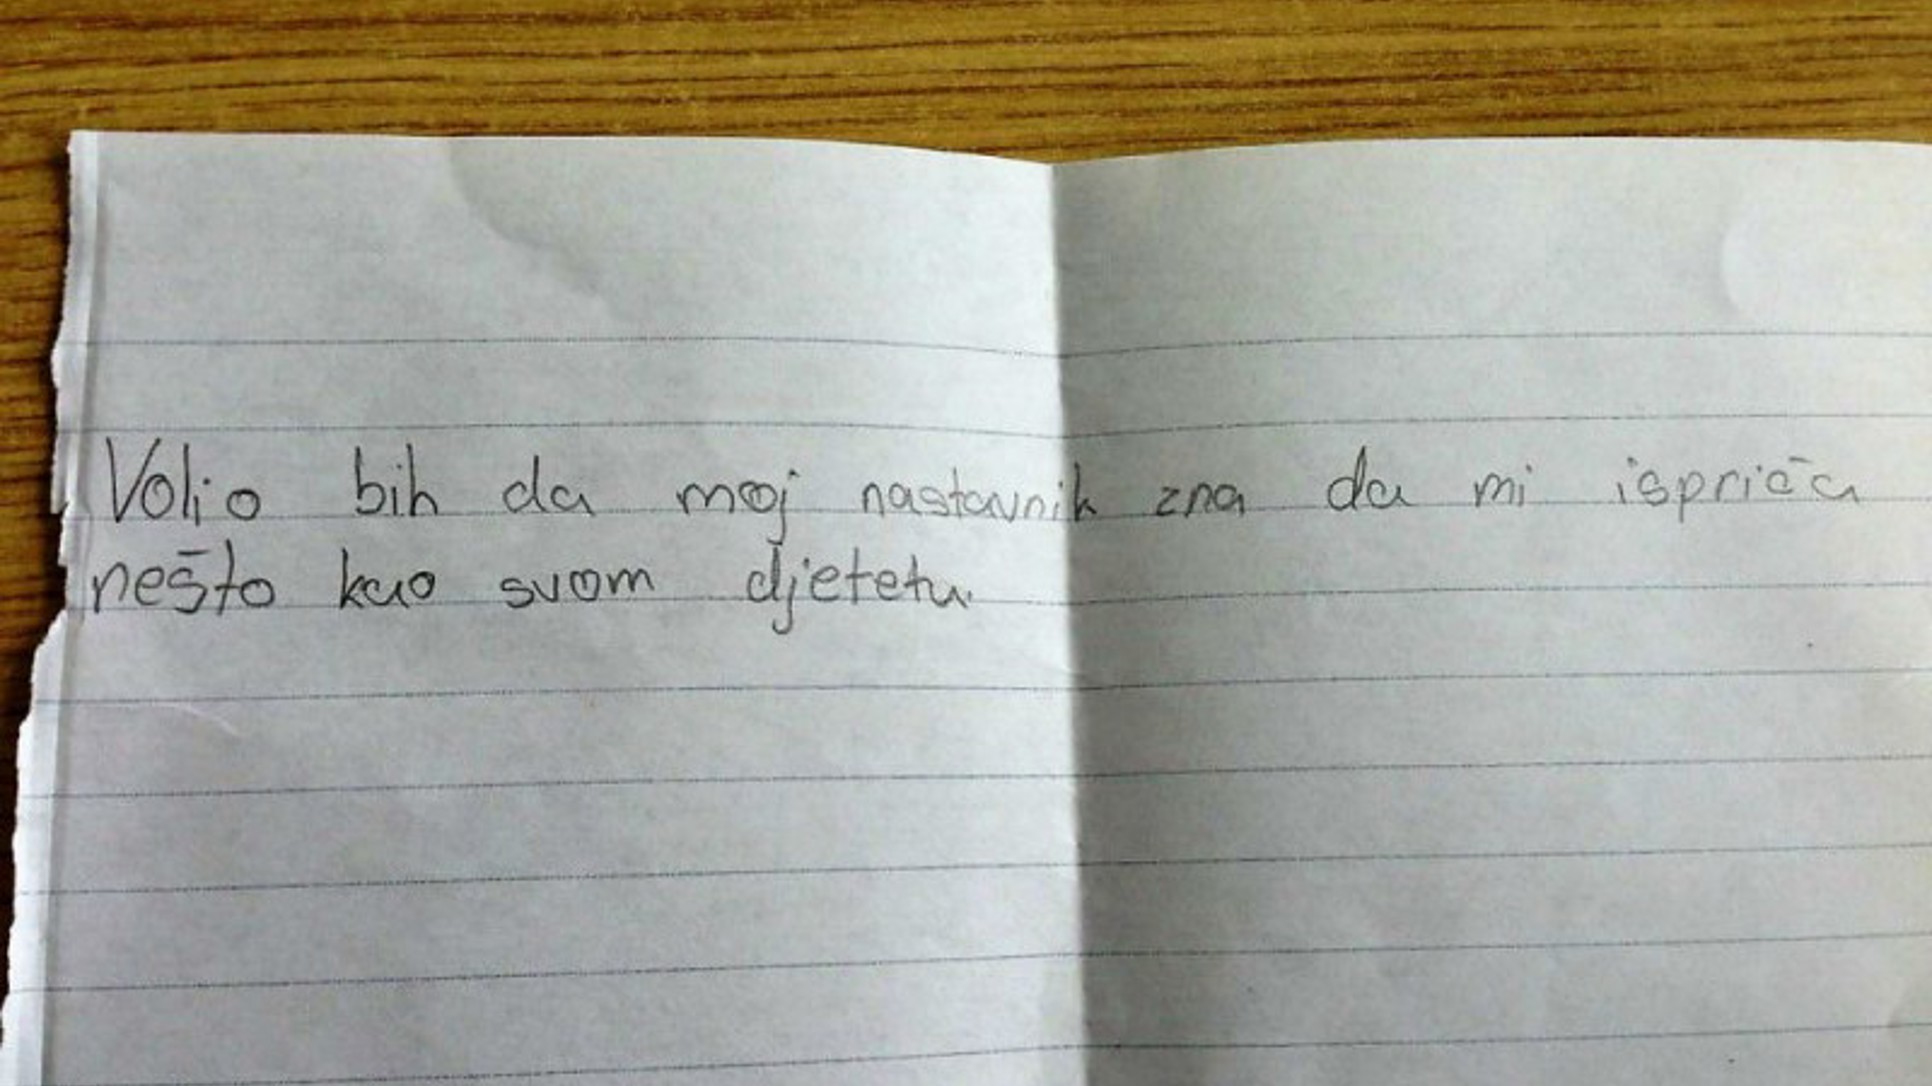 Volio bih da moj nastavnik zna da mi ispriča
nešto kao svom djetetu.